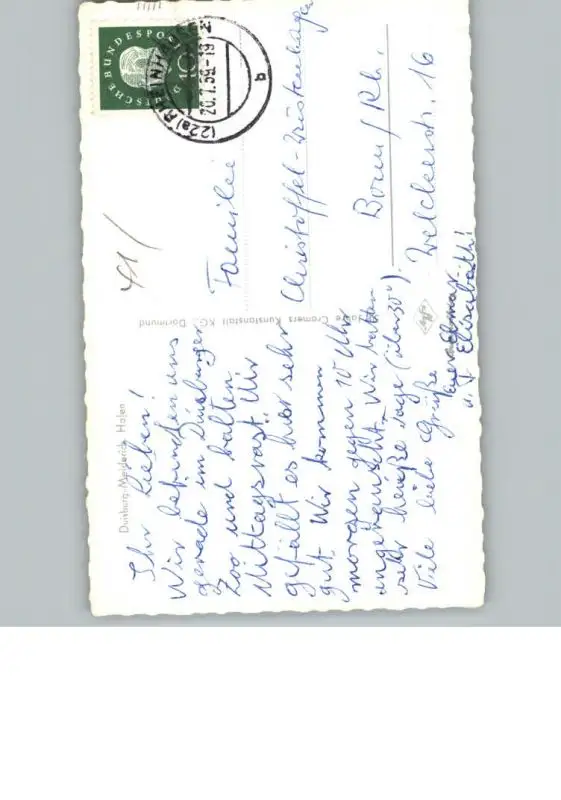 Duisburg-Meiderich Hafen
Ihr Lieben!
Wir befinden uns
gerade im Duisburger
Zoo und halten
Mittagsrast. Mir
gefällt es hier sehr
gut. Wir kommen
morgen gegen 10 Uhr
angerauscht. Wir hatten
sehr heiße Tage (über 30°).
Viele liebe Grüße
Euer Elmar
u. Elisabeth!
Cramers Kunstanstalt KG, Dortmund
DEUTSCHE BUNDESPOST
10
(22a) RHEINHAUSEN
20.7.59-19
b
Familie
Christoffel-
Bonn/Rh.
Welckerstr. 16